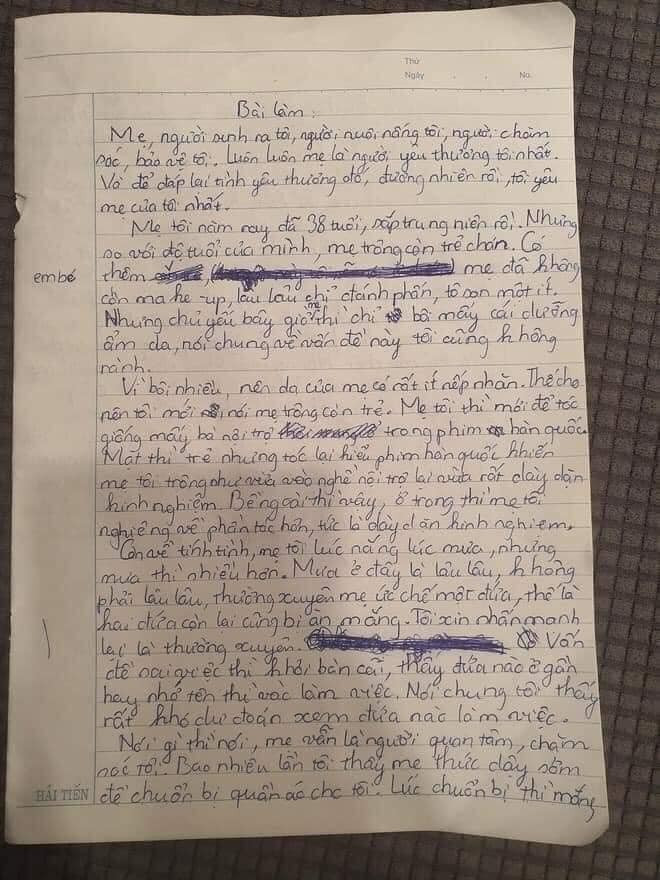 Thứ
Ngày . . No.
Bài làm:
Mẹ, người sinh ra tôi, người nuôi nấng tôi, người chăm
sóc, bảo vệ tôi. Luôn luôn mẹ là người yêu thương tôi nhất.
Và để đáp lại tình yêu thương đó, đương nhiên rồi, tôi yêu
mẹ của tôi nhất.
Mẹ tôi năm nay đã 38 tuổi, sắp trung niên rồi. Nhưng
so với độ tuổi của mình, mẹ trông còn trẻ chán. Có
em bé thêm mẹ đã không
còn make-up, lâu lâu chỉ đánh phấn, tô son một ít.
Nhưng chủ yếu bây giờ mẹ thì chỉ bôi mấy cái dưỡng
ẩm da, nói chung về vấn đề này tôi cũng không
rành.
Vì bôi nhiều, nên da của mẹ có rất ít nếp nhăn. Thế cho
nên tôi mới nói mẹ trông còn trẻ. Mẹ tôi thì mới để tóc
giống mấy bà nội trợ trong phim hàn quốc.
Mặt thì trẻ nhưng tóc lại kiểu phim hàn quốc khiến
mẹ tôi trông như vừa vào nghề nội trợ lại vừa rất dày dặn
kinh nghiệm. Bề ngoài thì vậy, ở trong thì mẹ tôi
nghiêng về phần tóc hơn, tức là dày dặn kinh nghiệm.
Còn về tính tình, mẹ tôi lúc nắng lúc mưa, nhưng
mưa thì nhiều hơn. Mưa ở đây là lâu lâu, không
phải lâu lâu, thường xuyên mẹ ức chế một đứa, thế là
hai đứa còn lại cũng bị ăn mắng. Tôi xin nhấn mạnh
lại là thường xuyên. Vấn
đề sai việc thì khỏi bàn cãi, thấy đứa nào ở gần
hay nhớ tên thì vác làm việc. Nói chung tôi thấy
rất khó dự đoán xem đứa nào làm việc.
Nói gì thì nói, mẹ vẫn là người quan tâm, chăm
sóc tôi. Bao nhiêu lần tôi thấy mẹ thức dậy sớm
để chuẩn bị quần áo cho tôi. Lúc chuẩn bị thì mắng
HẢI TIẾN